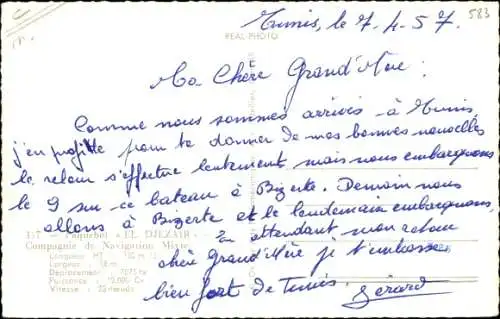 583
Tunis, le 7.4.57
REAL-PHOTO
Ma Chère Grand'Mère :
Comme nous sommes arrivés à Tunis
j'en profite pour te donner de mes bonnes nouvelles
le retour s'effectue lentement, mais nous embarquons
le 9 sur ce bateau à Bizerte. Demain nous
allons à Bizerte et le lendemain embarquons,
157 - Paquebot « EL DJEZAIR »
En attendant mon retour
Compagnie de Navigation Mixte
chère Grand'Mère je t'embrasse
Longueur HT
Largeur : 18 m
Déplacement : 7075 tx
Puissance :
bien fort de Tunis. Gérard
Vitesse : 22 nœuds